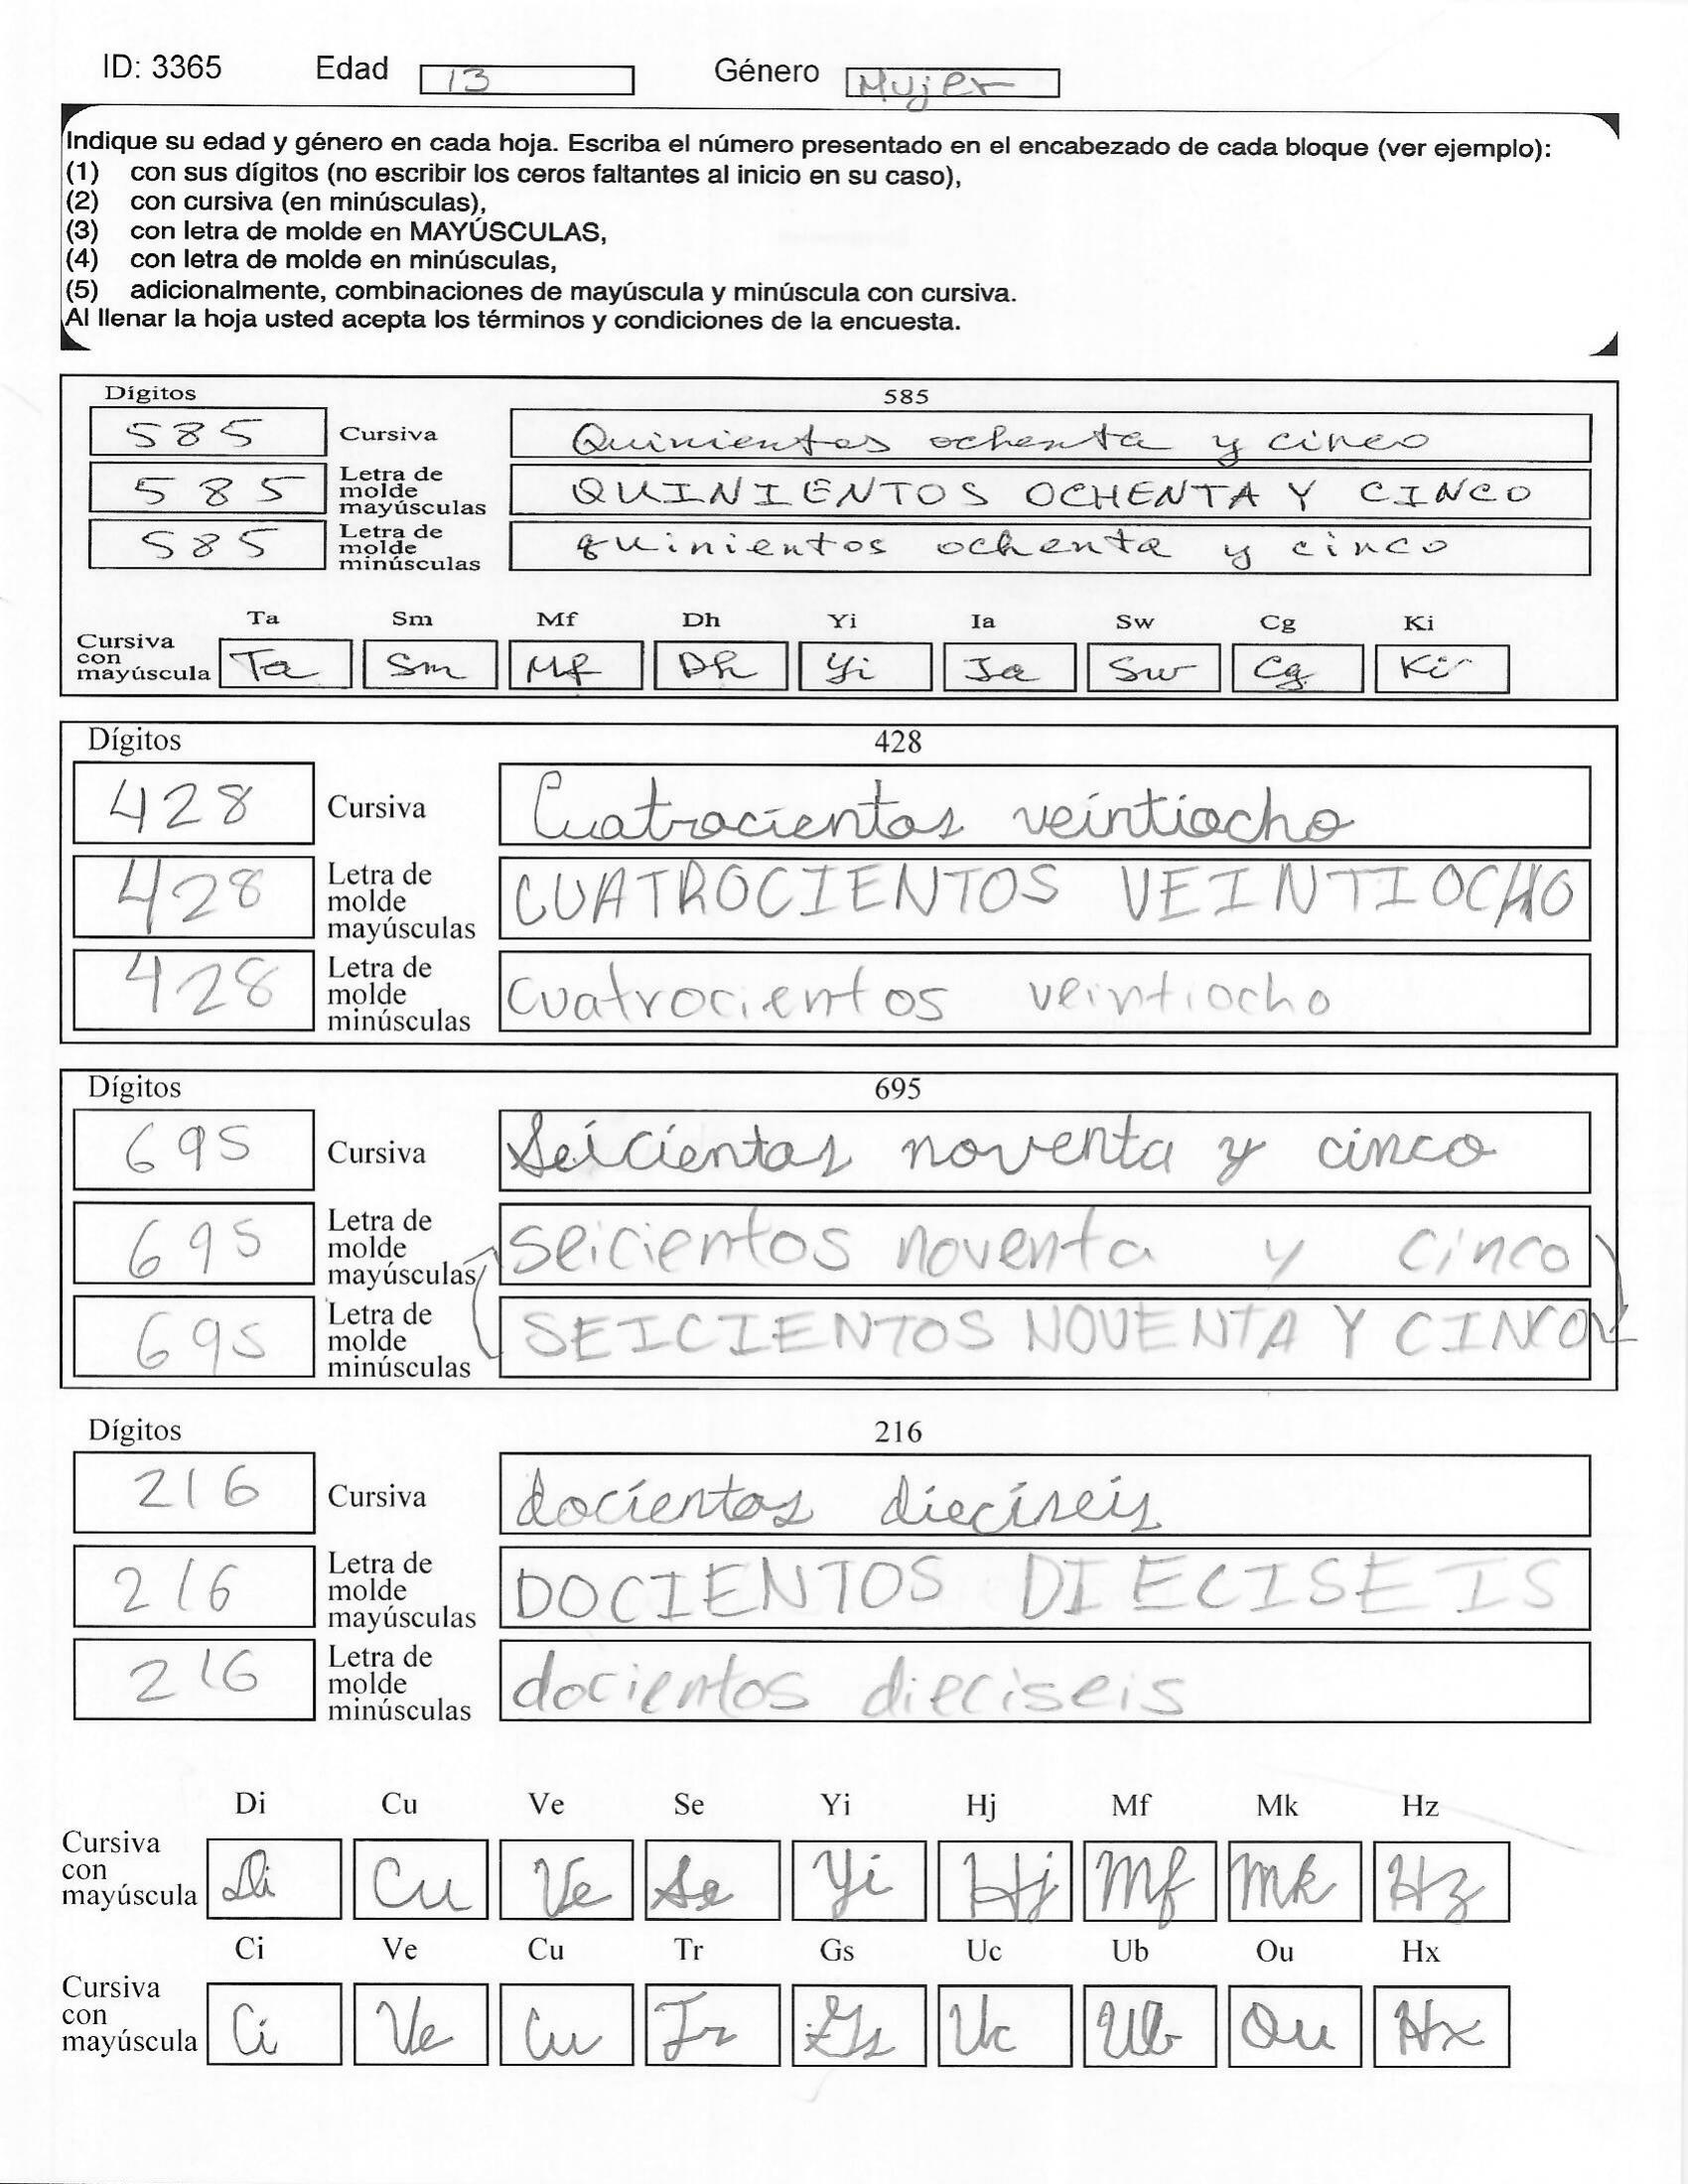 ID: 3365 Edad 13 Género Mujer
Indique su edad y género en cada hoja. Escriba el número presentado en el encabezado de cada bloque (ver ejemplo):
(1) con sus dígitos (no escribir los ceros faltantes al inicio en su caso),
(2) con cursiva (en minúsculas),
(3) con letra de molde en MAYÚSCULAS,
(4) con letra de molde en minúsculas,
(5) adicionalmente, combinaciones de mayúscula y minúscula con cursiva.
Al llenar la hoja usted acepta los términos y condiciones de la encuesta.
Dígitos 585
585 Cursiva Quinientos ochenta y cinco
585 Letra de molde mayúsculas QUINIENTOS OCHENTA Y CINCO
585 Letra de molde minúsculas quinientos ochenta y cinco
Ta Sm Mf Dh Yi Ia Sw Cg Ki
Cursiva con mayúscula Ta Sm Mf Dh Yi Ia Sw Cg Ki
Dígitos 428
428 Cursiva Cuatrocientos veintiocho
428 Letra de molde mayúsculas CUATROCIENTOS VEINTIOCHO
428 Letra de molde minúsculas cuatrocientos veintiocho
Dígitos 695
695 Cursiva Seicientos noventa y cinco
695 Letra de molde mayúsculas seicientos noventa y cinco
695 Letra de molde minúsculas SEICIENTOS NOVENTA Y CINCO
Dígitos 216
216 Cursiva docientos dieciseis
216 Letra de molde mayúsculas DOCIENTOS DIECISEIS
216 Letra de molde minúsculas docientos dieciseis
Di Cu Ve Se Yi Hj Mf Mk Hz
Cursiva con mayúscula Di Cu Ve Se Yi Hj Mf Mk Hz
Ci Ve Cu Tr Gs Uc Ub Ou Hx
Cursiva con mayúscula Ci Ve Cu Tr Gs Uc Ub Ou Hx